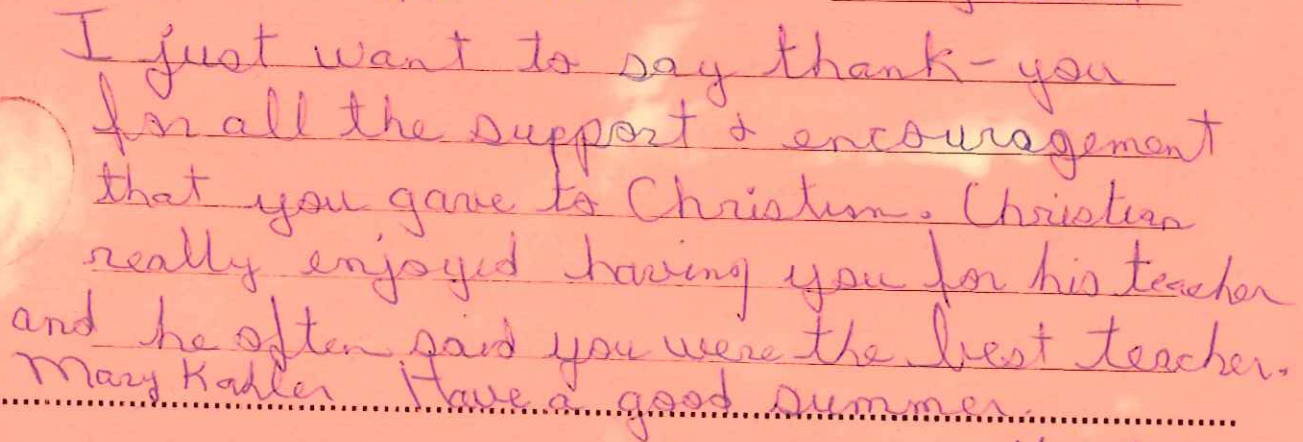 I just want to say thank-you
for all the support & encouragement
that you gave to Christian. Christian
really enjoyed having you for his teacher
and he often said you were the best teacher.
Mary Kahler Have a good summer.